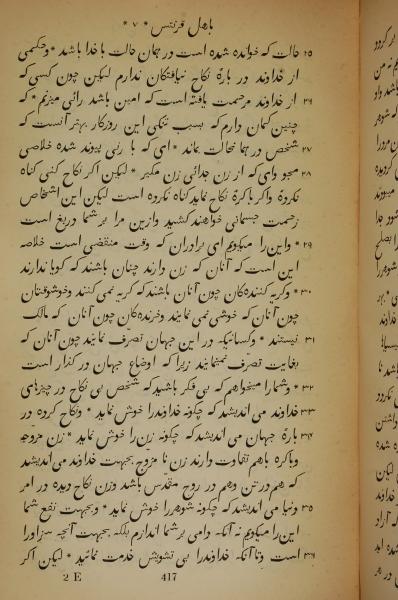 باهل قرنتس * ۷ *
۲۵ حالت که خوانده شده است در همان حالت با خدا باشد * وحکمی
از خداوند در بارهٔ نکاح نیافتکان ندارم لیکن چون کسی که
۲۶ از خداوند مرحمت یافته است که امین باشد رائی میزنم * که
چنین کمان دارم که بسبب تنکی این روزکار بهتر آنست که
۲۷ شخص در همان حالت بماند * ای که با زنی پیوند شده خلاصی
۲۸ مجو وای که از زن جدائی زن مکیر * لیکن اکر نکاح کنی کناه
نکردهٔ واکر باکرهٔ نکاح نماید کناه نکرده است لیکن این اشخاص
زحمت جسمانی خواهند کشید وازین مرا بر شما دریغ است
۲۹ * واین را میکویم ای برادران که وقت منقضی است خلاصه
این است که آنان که زن دارند چنان باشند که کویا ندارند
۳۰ * وکریه کنندهکان چون آنان باشند که کریه نمی کنند وخوشوقتان
چون آنان که خوشی نمی نمایند وخرندهکان چون آنان که مالک
۳۱ نیستند * وکسانیکه در این جهان تصرّف نمایند چون آنان که
بغایت تصرّف نمینمایند زیرا که اوضاع جهان در کذار است
۳۲ * وشما را میخواهم که بی فکر باشید که شخص بی نکاح در چیزهای
۳۳ خداوند می اندیشد که چکونه خداوند را خوش نماید * ونکاح کرده در
۳۴ بارهٔ جهان می اندیشد که چکونه زن را خوش نماید * زن مزوجه
وباکره با هم تفاوت دارند زن نا مزوّج بجهت خداوند می اندیشد
که هم در تن وهم در روح مقدّس باشد وزن نکاح دیده در امر
۳۵ دنیا می اندیشد که چکونه شوهر را خوش نماید * وبجهت نفع شما
این را میکویم نه آنکه دامی بر شما اندازم بلکه بجهت آنچه سزاوار
۳۶ است وتا آنکه خداوند را بی تشویش خدمت نمائید * لیکن اکر
2 E 417